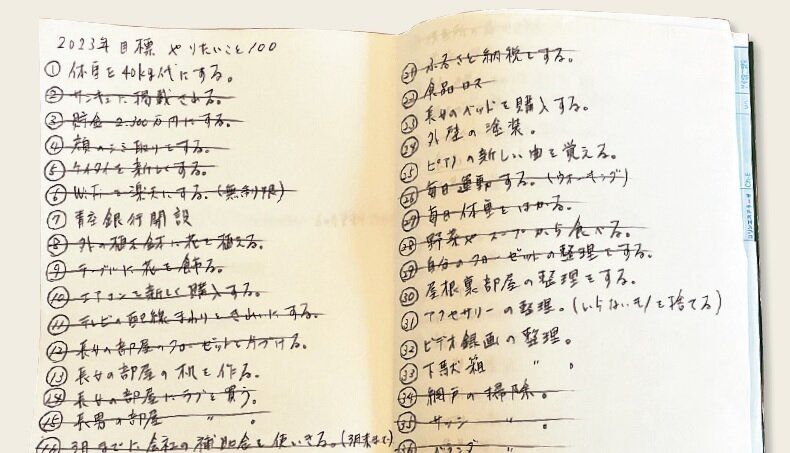 2023年目標 やりたいこと100
① 体重を40kg代にする。
② サンキュ!に掲載される。
③ 貯金2,300万円にする。
④ 顔のシミ取りをする。
⑤ ケイタイを新しくする。
⑥ WiFiを楽天にする。(無制限)
⑦ 青空銀行開設
⑧ 外の植木鉢に花を植える。
⑨ テーブルに花を飾る。
⑩ エアコンを新しく購入する。
⑪ テレビの配線まわりときれいにする。
⑫ 長女の部屋のクローゼットを片づける。
⑬ 長女の部屋の机を作る。
⑭ 長女の部屋にラグを買う。
⑮ 長男の部屋 〃 。
⑯ 3月までに会社の補助金を使いきる。(3月末まで)
㉑ ふるさと納税をする。
㉒ 食品ロス
㉓ 長女のベッドを購入する。
㉔ 外壁の塗装。
㉕ ピアノの新しい曲を覚える。
㉖ 毎日運動する。(ウォーキング)
㉗ 毎日体重をはかる。
㉘ 野菜やスープから食べる。
㉙ 自分のクローゼットの整理をする。
㉚ 屋根裏部屋の整理をする。
㉛ アクセサリーの整理。(いらないモノを捨てる)
㉜ ビデオ録画の整理。
㉝ 下駄箱 〃 。
㉞ 網戸の掃除。
㉟ サッシ 〃 。
㊱ ベランダ 〃 。